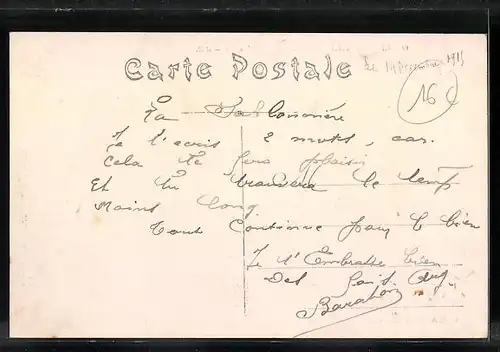 Carte Postale
Le 14 1915
16
La Sablonnière
Je t'ecris 2 mots, car
Cela te fera plaisir
Et tu trouvera le temp
Moins long
Tout Continue pour le bien
Je t'Embrasse bien
Des fois
Baraton